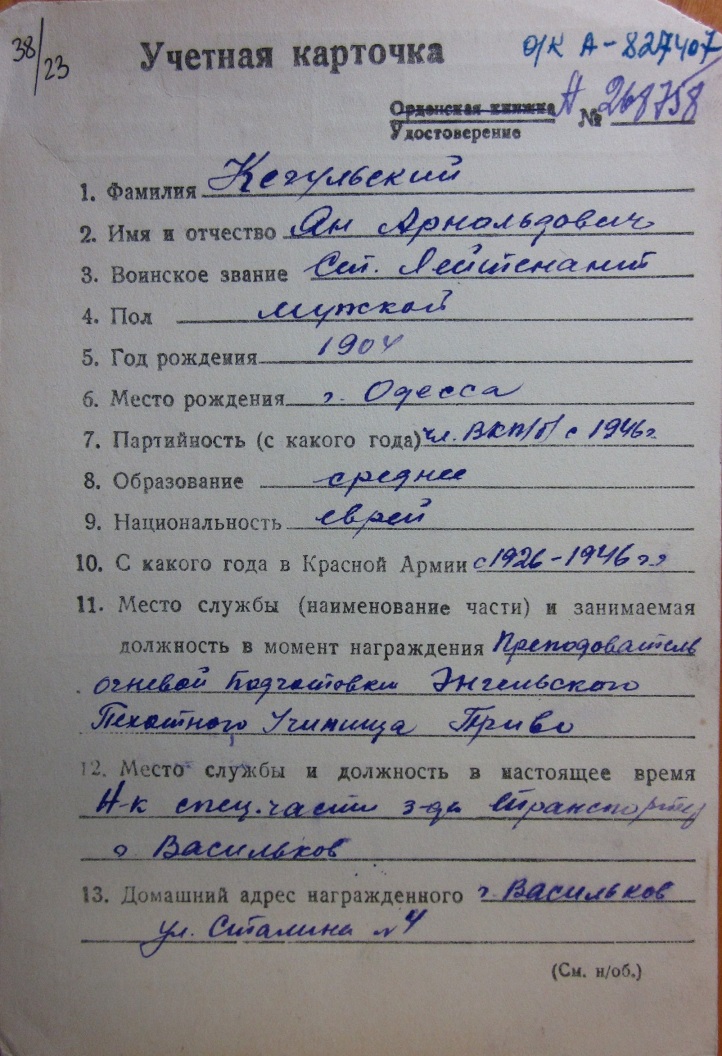 38/23
Учетная карточка
О/К А-827407
Орденская книжка А № 268758
Удостоверение
1. Фамилия Кегульский
2. Имя и отчество Ян Арнольдович
3. Воинское звание Ст. Лейтенант
4. Пол мужской
5. Год рождения 1904
6. Место рождения г. Одесса
7. Партийность (с какого года) чл. ВКП/б/ с 1946г
8. Образование среднее
9. Национальность еврей
10. С какого года в Красной Армии с 1926-1946 гг
11. Место службы (наименование части) и занимаемая
должность в момент награждения Преподователь
огневой Подготовки Энгельского
Пехотного Училища Приво
12. Место службы и должность в настоящее время
Н-к спец.части з-да
г Васильков
13. Домашний адрес награжденного г. Васильков
ул. Сталина № 4
(См. н/об.)